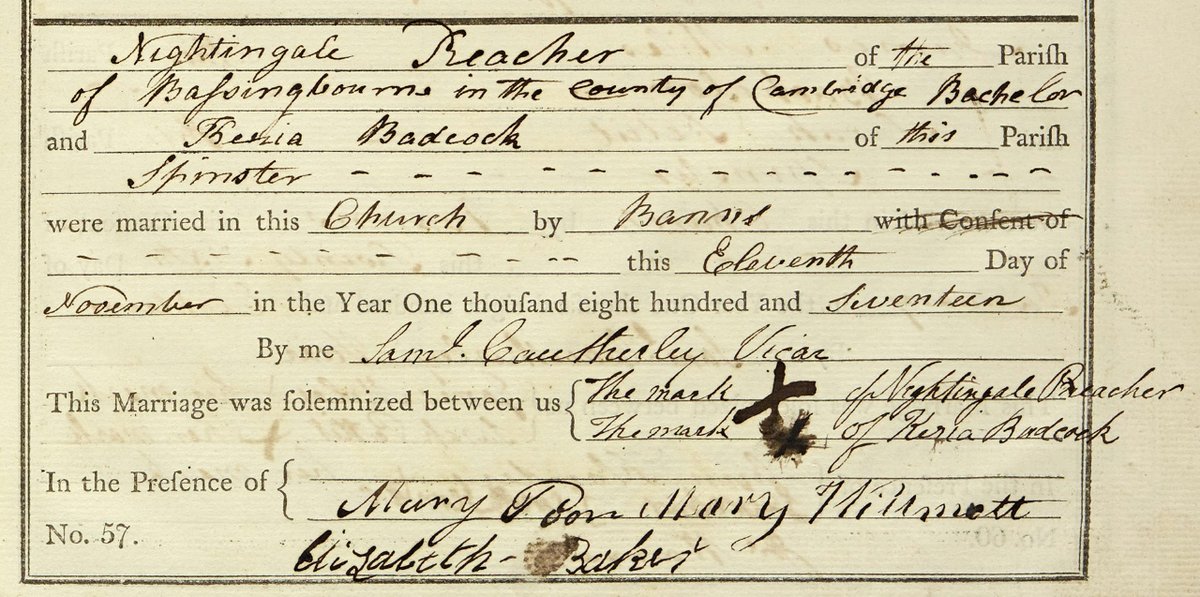 Nightingale Preacher of the Pariſh
of Baſsingbourne in the County of Cambridge Bachelor
and Kezia Badcock of this Pariſh
Spinster - - - - - - - - - - - - -
were married in this Church by Banns with Conſent of
- - - - - - - - - this Eleventh Day of
November in the Year One thouſand eight hundred and Seventeen
By me Saml. Cautherley Vicar
This Marriage was ſolemnized between us { The mark X of Nightingale Preacher
The mark X of Kezia Badcock
In the Preſence of { Mary Poon Mary Willmott
No. 57. Elizabeth Baker